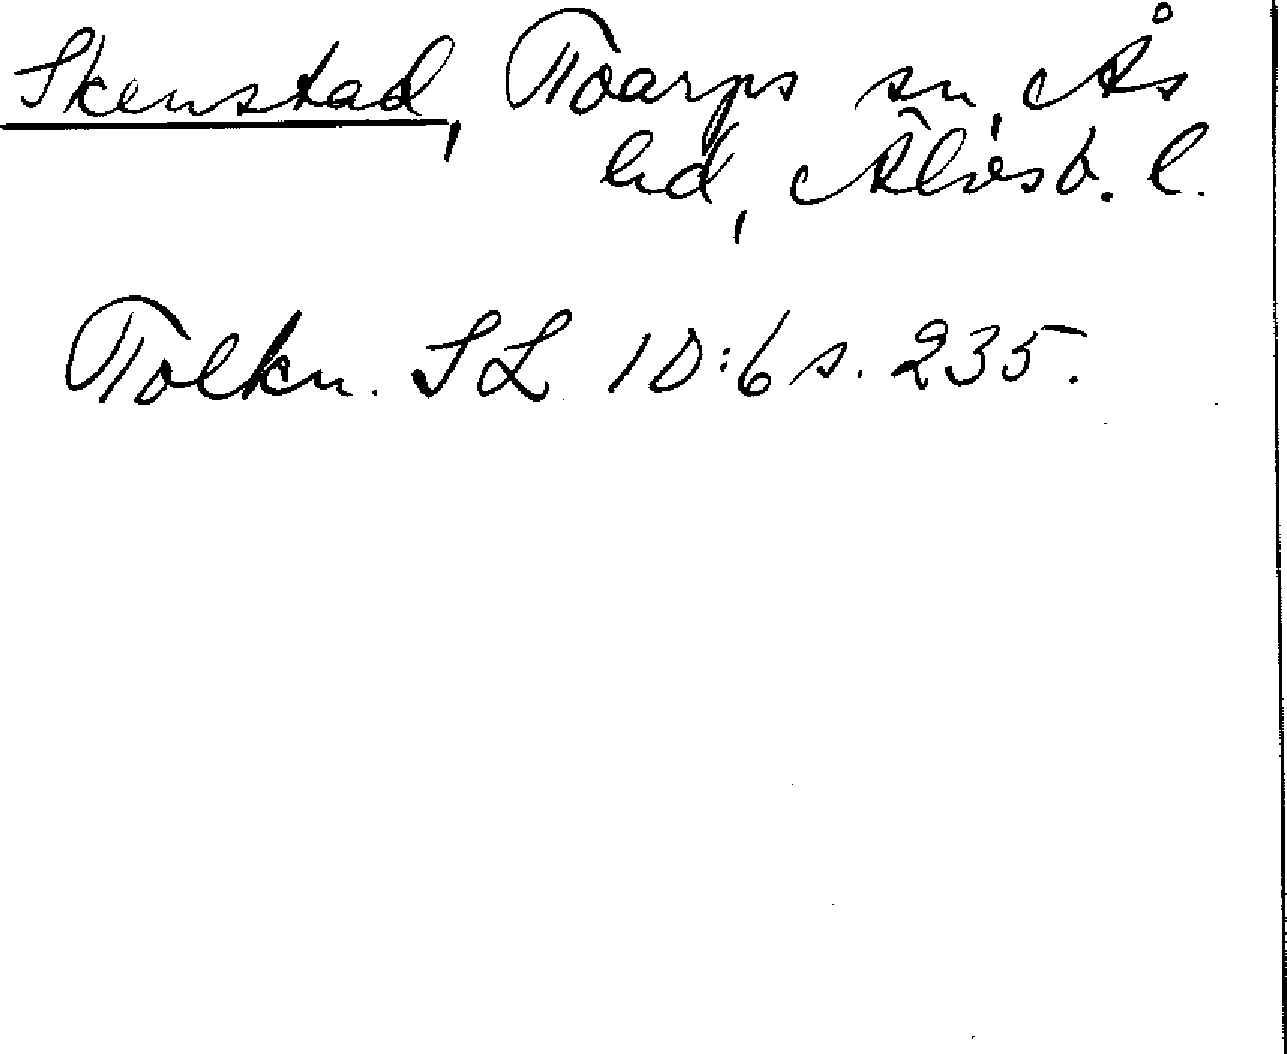 Skenstad, Toarps sn, Ås
hd, Älvsb. l.
Tolkn. SL 1D:6 s. 235.